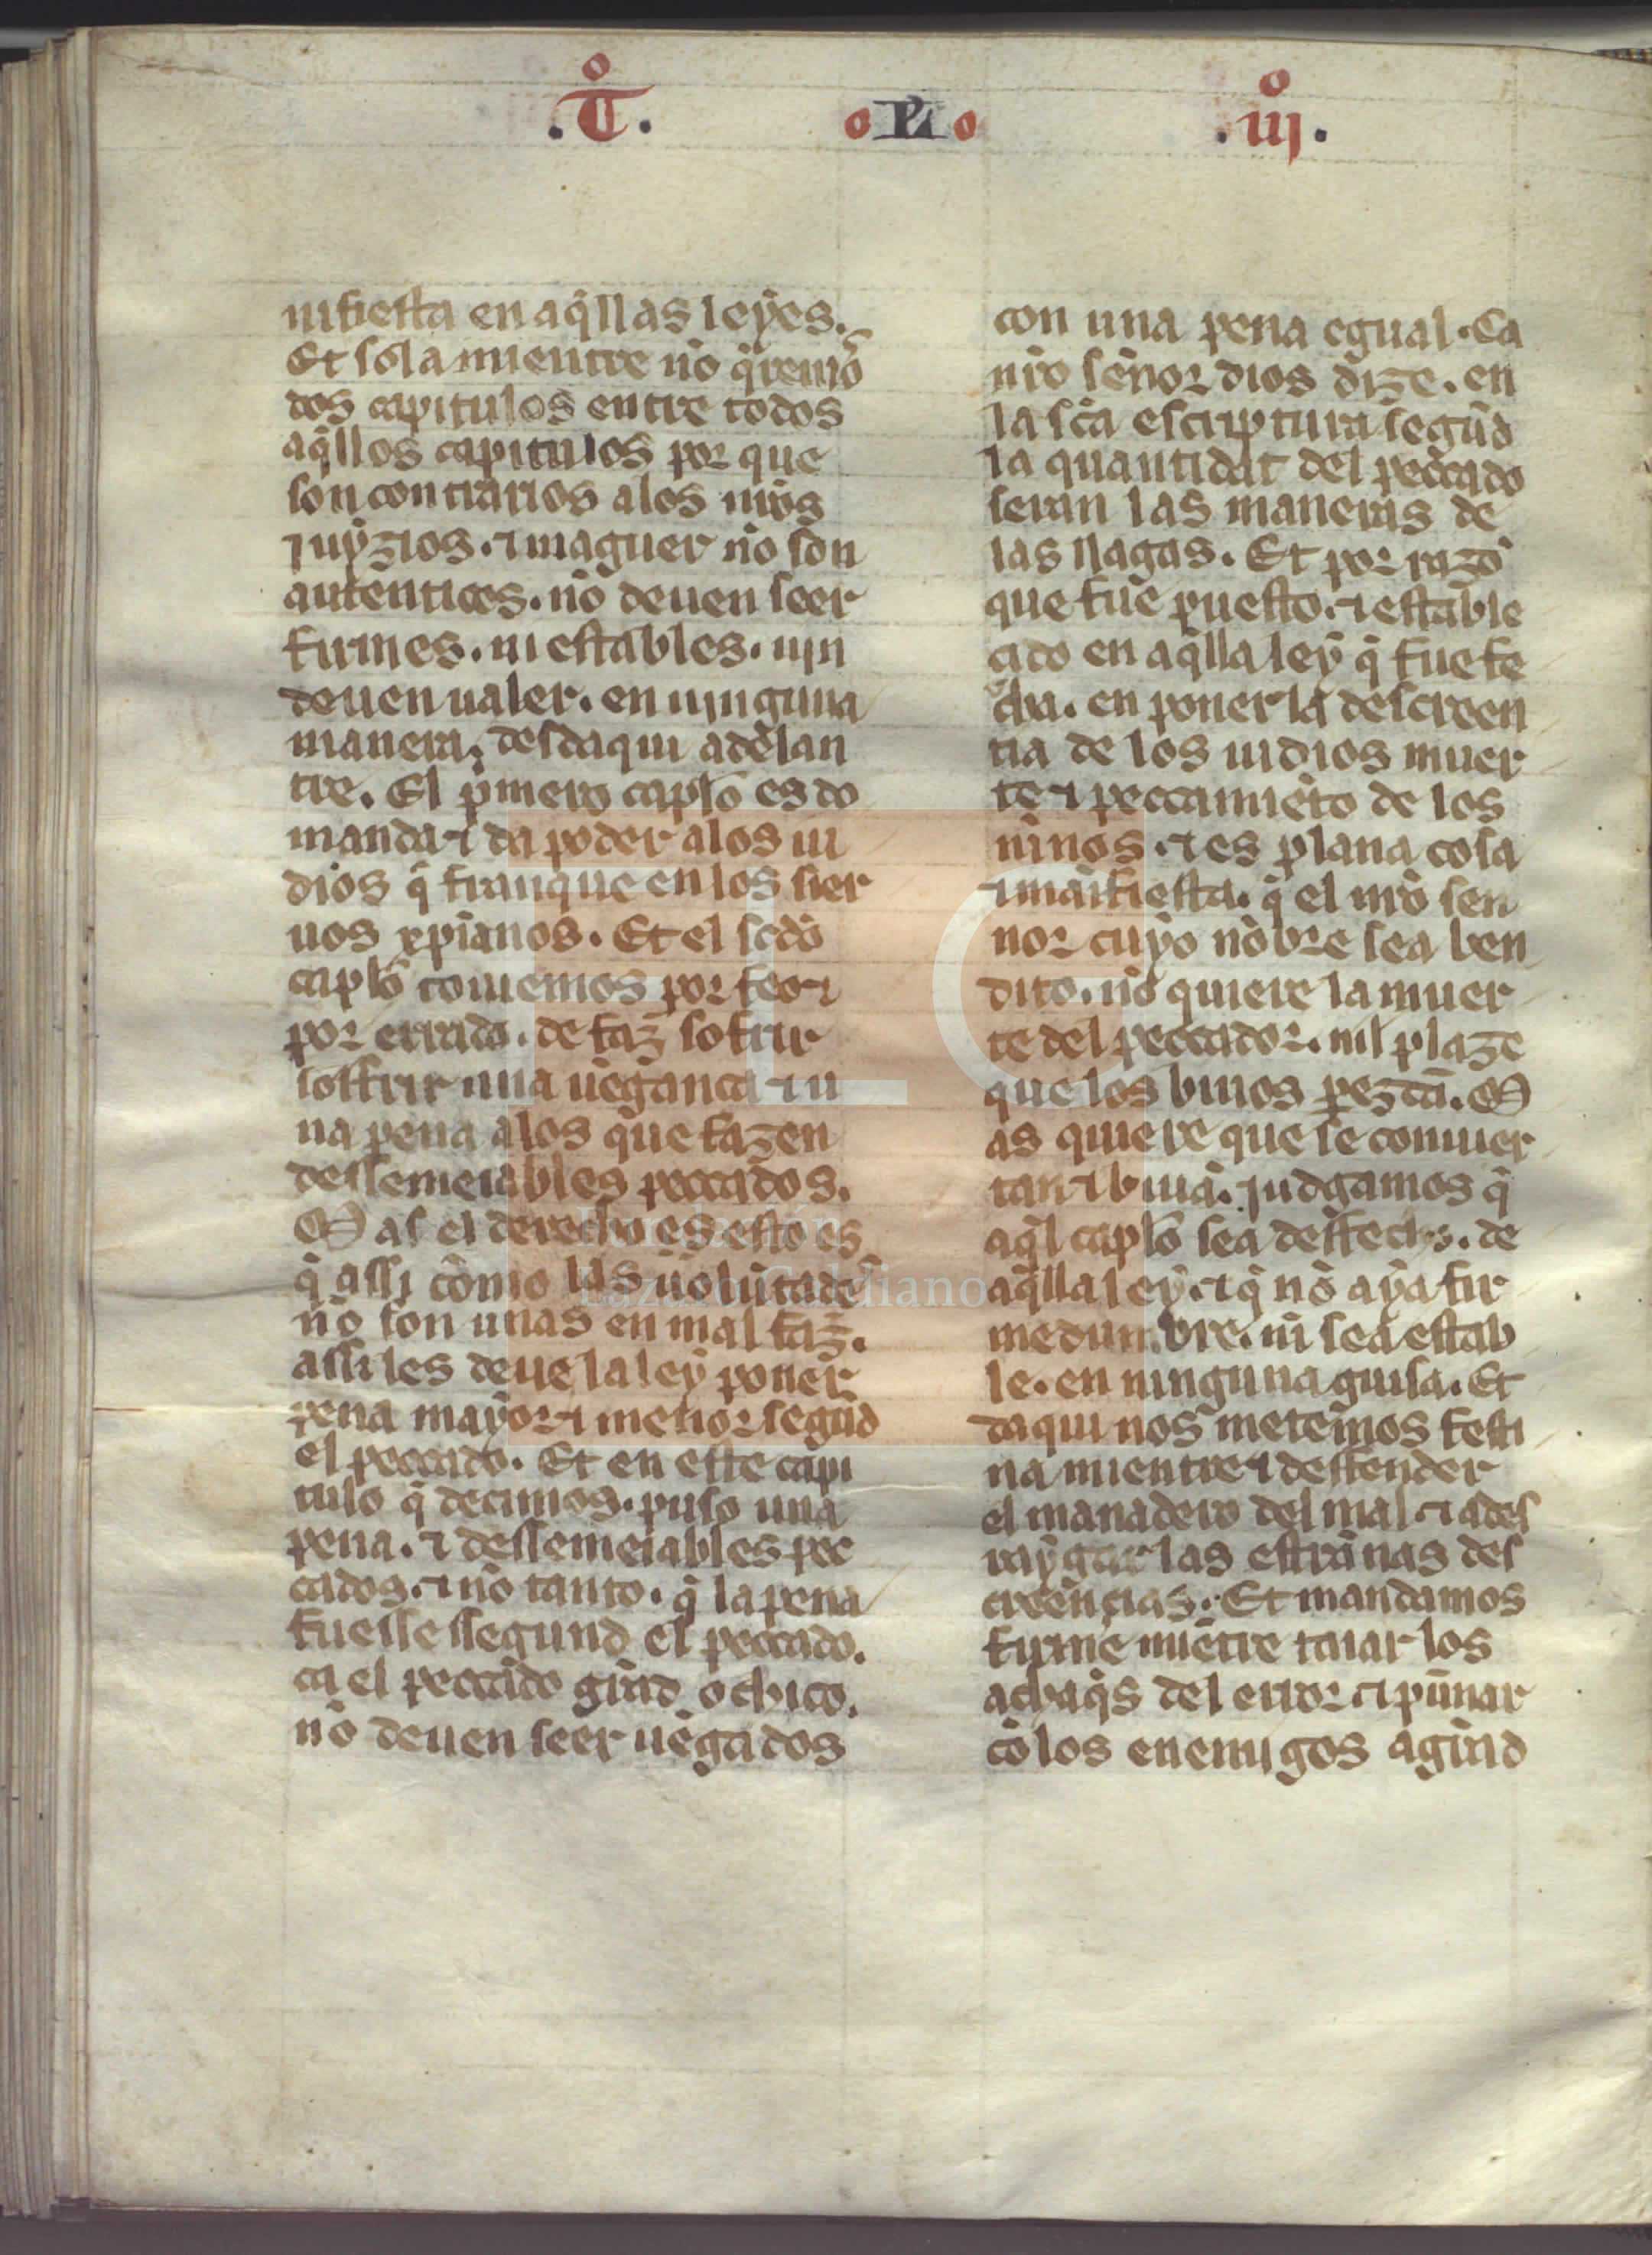 .T̊. o L o .iij̊.
nifiesta en aq̃llas leyes.
Et sola mientre nõ q̃remõ
dos capitulos entre todos
aq̃llos capitulos por que
son contrarios alos nr̃os
juyzios. ⁊ maguer nõ son
autenticos. nõ deuen seer
firmes. ni estables. nin
deuen ualer. en ninguna
manera. desdaqui adelan
tre. El p̃mero caplõ es do
manda ⁊ da poder alos iu
dios q̃ franque en los sier
uos xp̃ianos. Et el scdõ
caplõ touiemos por feo ⁊
por errado. de faz sofrir
soffrir una uẽgança ⁊ u
na pena alos que fazen
dessemeiables peccados.
Mas el derecho es esto es
q̃ assi cõmo las uolũtades
nõ son unas en mal faz̃.
assi les deue la ley poner
pena mayor ⁊ menor segũd
el peccado. Et en este capi
tulo q̃ decimos. puso una
pena. ⁊ dessemeiables pec
cados. ⁊ nõ tanto. q̃ la pena
fuesse ssegund el peccado.
ca el peccado grãd o chico.
nõ deuen seer uẽgados
con una pena egual. Ca
nr̃o señor dios dize. en
la sc̃a escriptura segũd
la quantidat del peccado
seran las maneras de
las llagas. Et por razõ
que fue puesto. ⁊ estable
cido en aq̃lla ley q̃ fue fe
cha. en poner la descreen
cia de los iudios muer
te ⁊ peccamiẽto de los
ninos. ⁊ es plana cosa
⁊ mãifiesta. q̃ el nr̃o sen
nor cuyo nõbre sea ben
dito. nõ quiere la muer
te del peccador. nil plaze
que los biuos perezcã. M
as quiere que se conuier
tan ⁊ biuã. judgamos q̃
aq̃l caplõ sea deffecho. de
aq̃lla ley. ⁊ q̃ nõ aya fir
medumbre. ni sea estab
le. en ninguna guisa. Et
daqui nos metemos festi
na mientre ⁊ deffender
el manadero del mal. ⁊ a des
raygar las estranas des
creencias. Et mandamos
firme miẽtre taiar los
achaq̃s del error. ⁊ punnar
cõ los enemigos a grãd